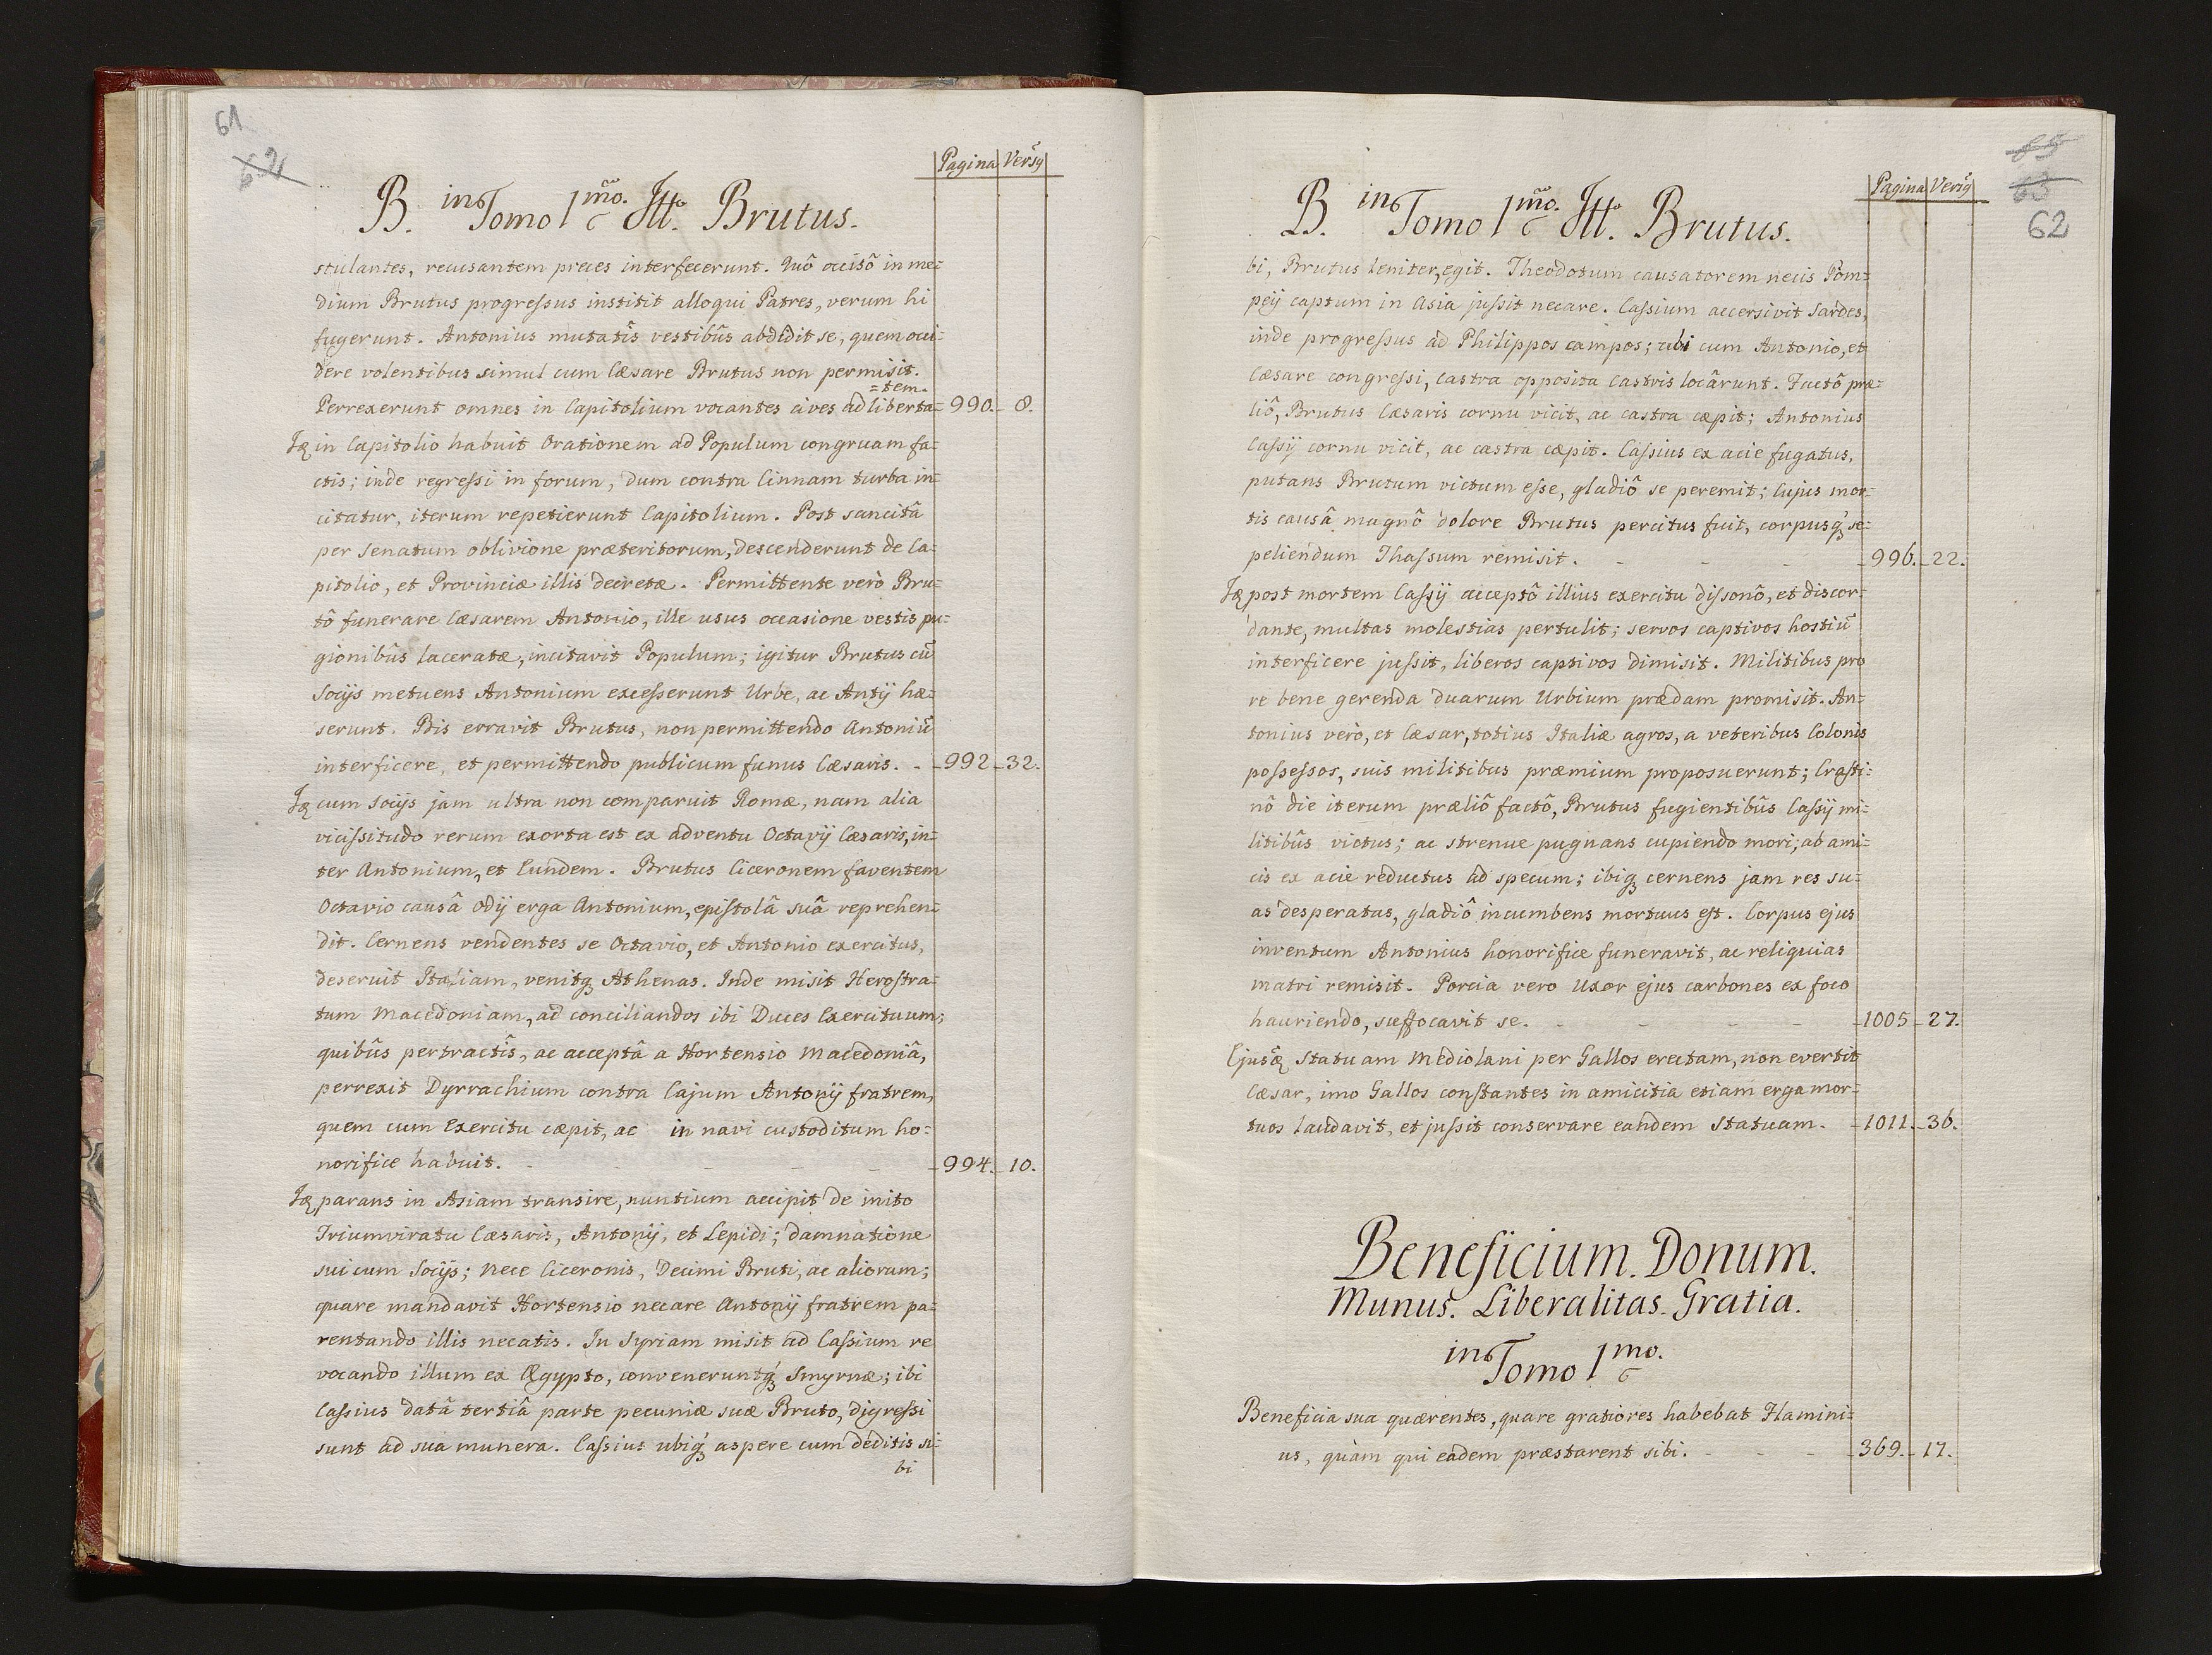 61
62
Pagina Versq
B. in Tomo 1mo. Itt. Brutus.
stulantes, recusantem preces interfecerunt. Quô occisô in me=
dium Brutus progressus institit alloqui Patres, verum hi
fugerunt. Antonius mutatîs vestibûs abdidit se, quem occi=
dere volentibus simul cum Cæsare Brutus non permisit.
=tem.
Perrexerunt omnes in Capitolium vocantes cives ad liberta= 990. 8.
Iq in Capitolio habuit Orationem ad Populum congruam fa=
ctis; inde regressi in forum, dum contra Cinnam turba in=
citatur, iterum repetierunt Capitolium. Post sancitâ
per Senatum oblivione præteritorum, descenderunt de Ca=
pitolio, et Provinciæ illis decretæ. Permittente verò Bru=
tô funerare Cæsarem Antonio, ille usus occasione vestis pu=
gionibûs laceratæ, incitavit Populum; igitur Brutus cū
Socijs metuens Antonium excesserunt Urbe, ac Antij hæ=
serunt. Bis erravit Brutus, non permittendo Antoniū
interficere, et permittendo publicum funus Cæsaris. - 992 - 32.
Iq cum Socijs jam ultra non comparuit Romæ, nam alia
vicissitudo rerum exorta est ex adventu Octavij Cæsaris, in=
ter Antonium, et Eundem. Brutus Ciceronem faventem
Octavio causâ Odij erga Antonium, epistolâ suâ reprehen=
dit. Cernens vendentes se Octavio, et Antonio exercitus,
deseruit Italiam, venitq Athenas. Inde misit Herostra=
tum Macedoniam, ad conciliandos ibi Duces Exercituum;
quibûs pertractîs, ac acceptâ a Hortensio Macedoniâ,
perrexit Dyrrachium contra Cajum Antonij fratrem,
quem cum Exercitu cæpit, ac in navi custoditum ho=
norifice habuit. - - - - - 994. 10.
Iq parans in Asiam transire, nuntium accipit de inito
Triumviratu Cæsaris, Antonij, et Lepidi; damnatione
sui cum Socijs; nece Ciceronis, Decimi Bruti, ac aliorum;
quare mandavit Hortensio necare Antonij fratrem pa=
rentando illis necatis. In Syriam misit ad Cassium re
vocando illum ex Ægypto, conveneruntq Smyrnæ; ibi
Cassius datâ tertiâ parte pecuniæ suæ Bruto, digressi
sunt ad sua munera. Cassius ubiq aspere cum deditis si=
bi
63
62
Pagina Versq
B. in Tomo 1mo. Itt. Brutus.
bi, Brutus leniter, egit. Theodotum causatorem necis Pom=
peij captum in Asia jussit necare. Cassium accersivit Sardes,
inde progressus ad Philippos campos; ubi cum Antonio, et
Cæsare congressi, Castra opposita Castris locârunt. Factô præ=
liô, Brutus Cæsaris cornu vicit, ac castra cæpit; Antonius
Cassij cornu vicit, ac castra cæpit. Cassius ex acie fugatus,
putans Brutum victum esse, gladiô se peremit; Cujus mor=
tis causâ magnô dolore Brutus percitus fuit, corpusq se=
peliendum Thassum remisit. - - - - 996. - 22.
Iq post mortem Cassij acceptô illius exercitu dissonô, et discor=
dante, multas molestias pertulit; servos captivos hostiū
interficere jussit, liberos captivos dimisit. Militibus pro
re bene gerenda duarum Urbium prædam promisit. An=
tonius verò, et Cæsar, totius Italiæ agros, a veteribus Colonis
possessos, suis militibus præmium proposuerunt; Crasti=
nô die iterum præliô factô, Brutus fugientibûs Cassij mi=
litibûs victus; ac strenue pugnans cupiendo mori; ab ami=
cis ex acie reductus ad specum; ibiq cernens jam res su=
as desperatas, gladiô incumbens mortuus est. Corpus ejus
inventum Antonius honorifice funeravit, ac reliquias
matri remisit. Porcia vero Uxor ejus carbones ex foco
hauriendo, suffocavit se. - - - - 1005 - 27.
Ejusq Statuam Mediolani per Gallos erectam, non evertit
Cæsar, imo Gallos constantes in amicitia etiam erga mor=
tuos laudavit, et jussit conservare eandem Statuam. - 1011. - 36.
Beneficium. Donum.
Munus. Liberalitas. Gratia.
in Tomo 1mo.
Beneficia sua quærentes, quare gratiores habebat Flamini=
us, quàm qui eadem præstarent sibi. - - - 369. - 17.